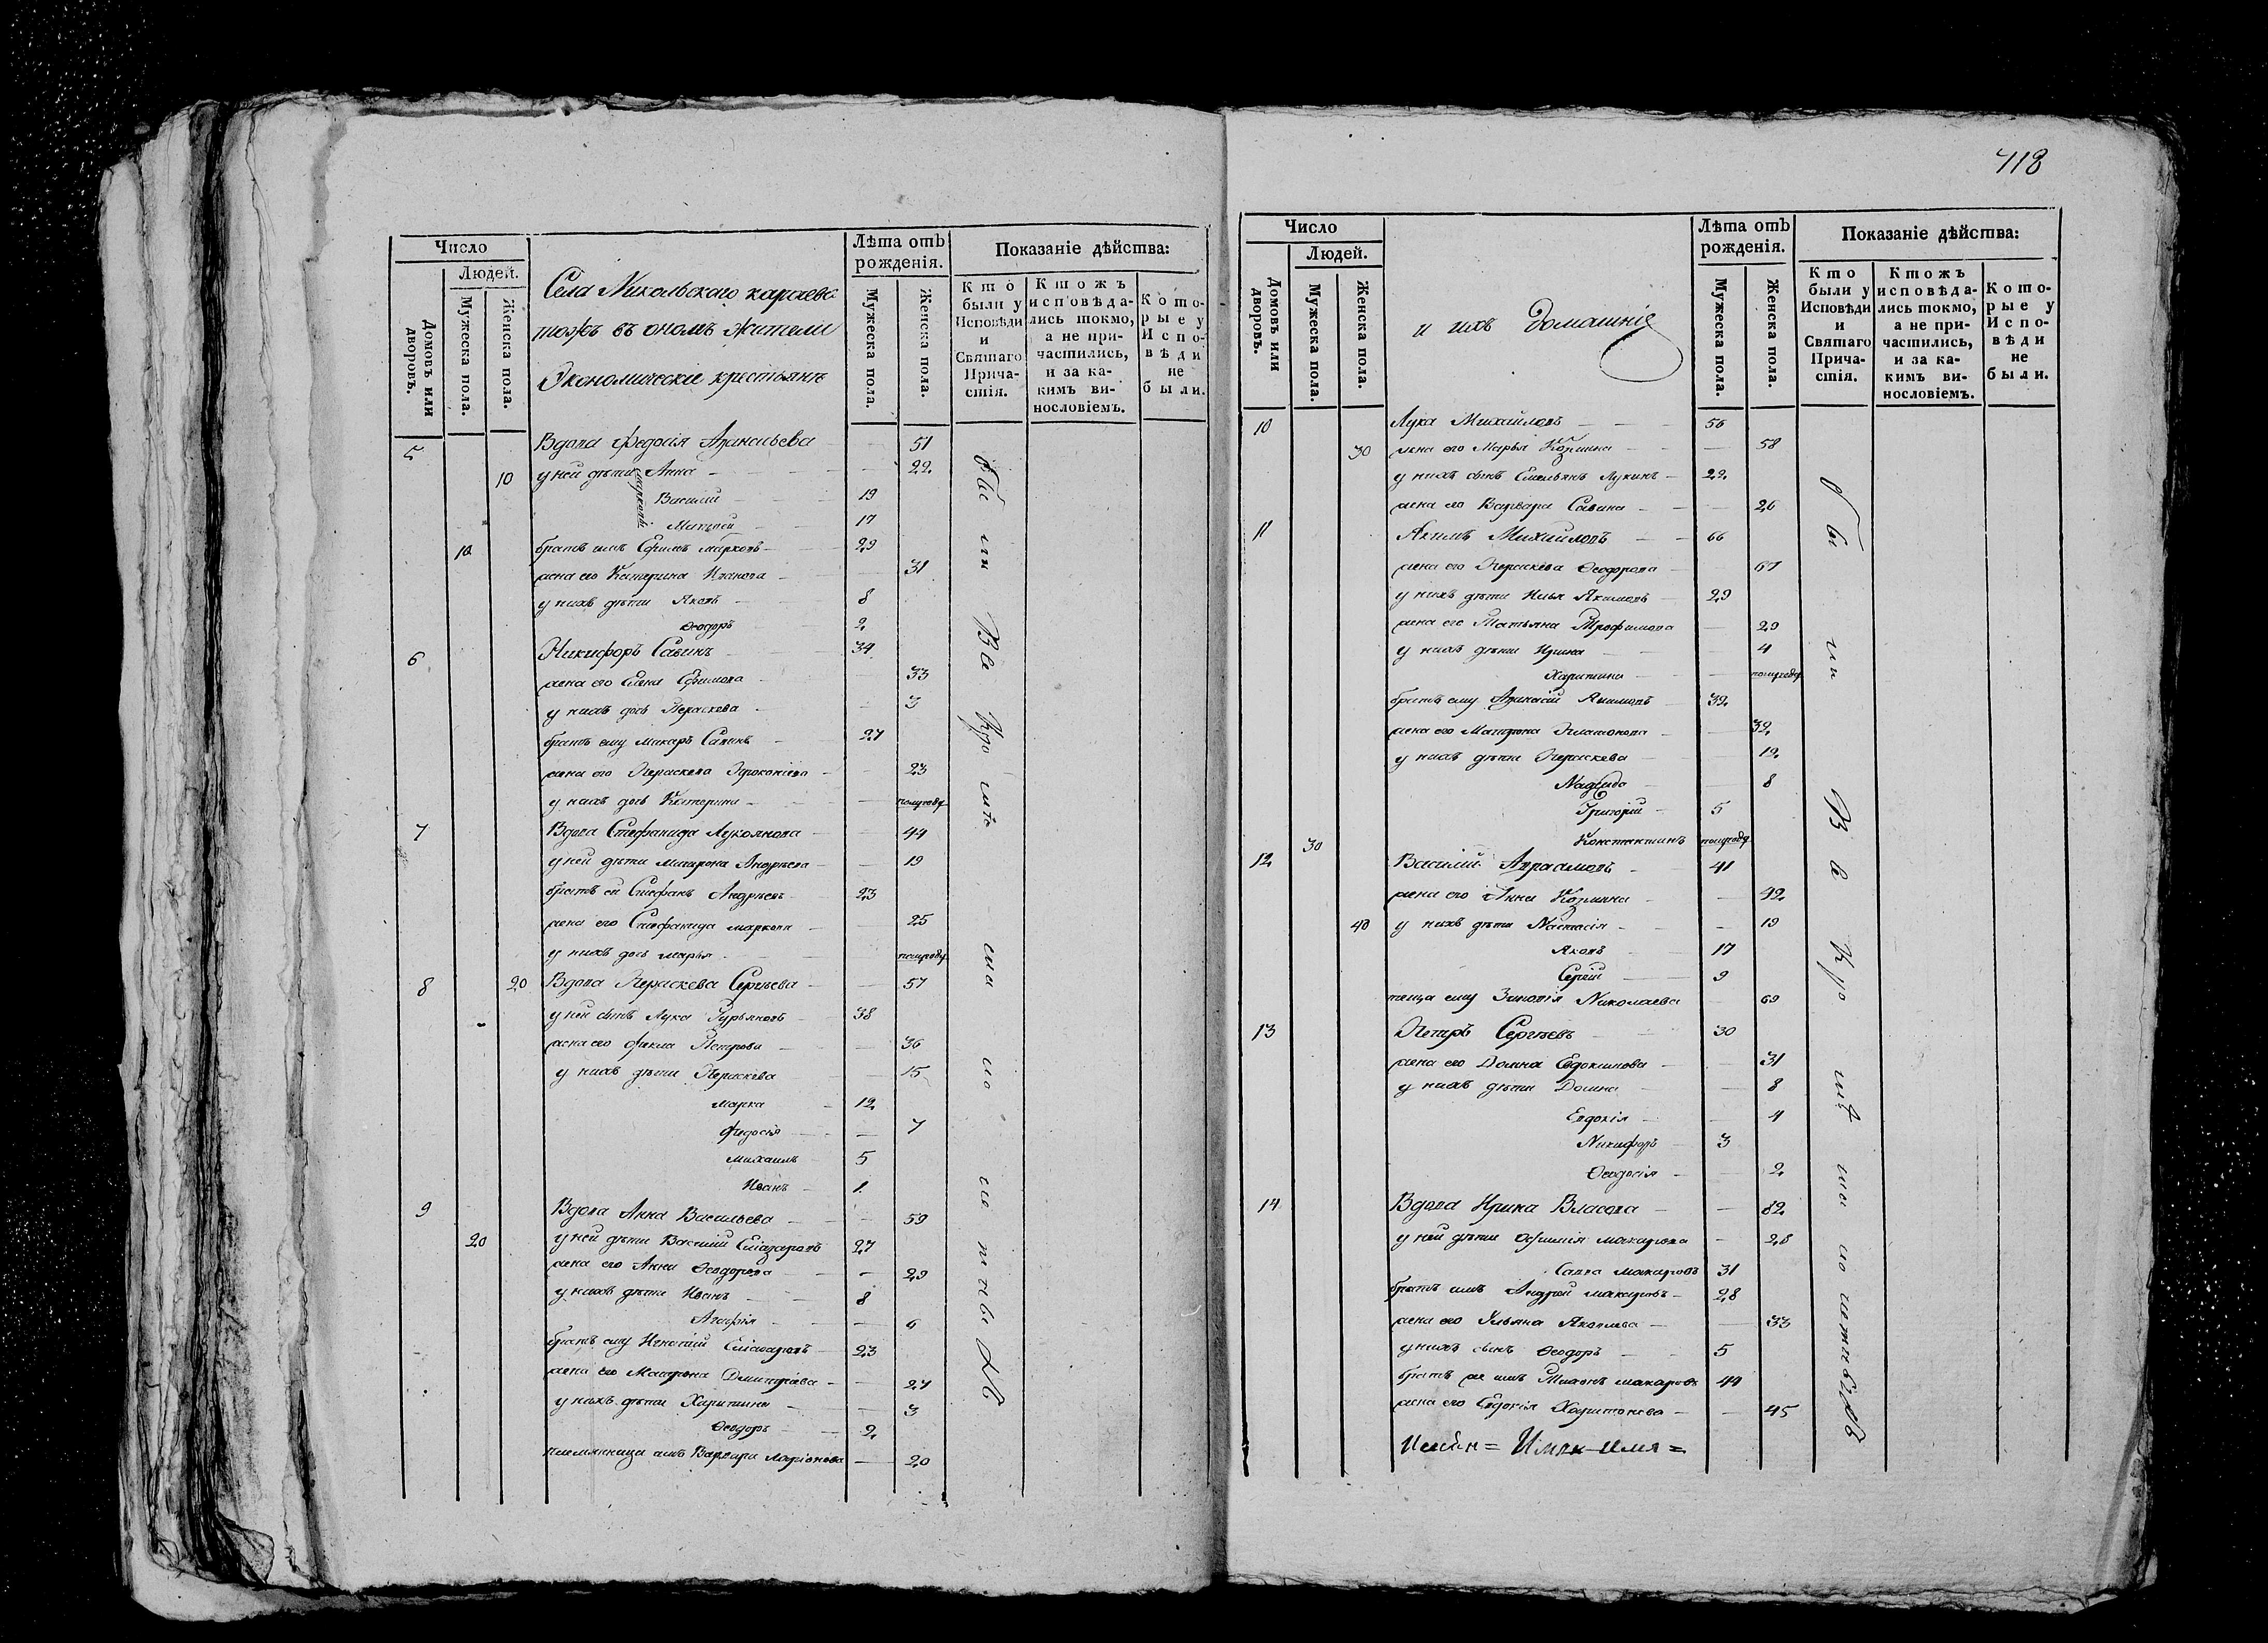 Число
Людей.
Домовъ или дворовъ.
Мужеска пола.
Женска пола.
Села Никольскаго караева
тожъ въ ономъ жители
Экономическіе крестьянъ
Лѣта отъ рожденія.
Мужеска пола.
Женска пола.
Показаніе дѣйства:
Кто были у Исповѣди и Святаго Прича-стія.
Ктожъ исповѣда-лись токмо, а не при-частились, и за ка-кимъ ви-нословіемъ.
Кото-рые у Испо-вѣди не были.
5 Вдова Федосія Афанасьева — 51
10 у ней дѣти Анна — 22
Василій 19
Матвей 17
10 братъ имъ Ефимъ Марковъ 29
жена его Катерина Иванова — 31
у нихъ дѣти Яковъ 8
Ѳеодоръ 2
6 Никифоръ Савинъ 34
жена его Елена Ефимова 33
у нихъ дочь Пераскева — 3
братъ ему Макаръ Савинъ 27
жена его Пераскева Прокопіева — 23
у нихъ дочь Катерина — полугоду
7 Вдова Стефанида Лукоянова — 44
у ней дѣти Матрона Андрѣева — 19
братъ ей Стефанъ Андрѣевъ 23
жена его Стефанида Маркова — 25
у нихъ дочь Марья полугоду
8 20 Вдова Пераскева Сергѣева — 57
у ней сынъ Лука Гурьяновъ 38
жена его Фекла Петрова — 36
у нихъ дѣти Пераскева 15
Марка 12
Федосія — 7
Михаилъ 5
Иванъ 1
9 Вдова Анна Васильева — 59
20 у ней дѣти Василій Еліазаровъ 27
жена его Анна Ѳеодорова — 29
у нихъ дѣти Иванъ 8
Агафія — 6
братъ ему Игнатій Еліазаровъ 23
жена его Матрона Дмитріева — 27
у нихъ дѣти Харитина — 3
Ѳеодоръ 2
племянница имъ Варвара Ларіонова — 20
418
Число
Людей.
Домовъ или дворовъ.
Мужеска пола.
Женска пола.
и ихъ домашніе
Лѣта отъ рожденія.
Мужеска пола.
Женска пола.
Показаніе дѣйства:
Кто были у Исповѣди и Святаго Прича-стія.
Ктожъ исповѣда-лись токмо, а не при-частились, и за ка-кимъ ви-нословіемъ.
Кото-рые у Испо-вѣди не были.
10 Лука Михайловъ 56
30 жена его Марья Козмина — 58
у нихъ сынъ Емельянъ Лукинъ 22
жена его Варвара Савина — 26
11 Акимъ Михайловъ 66
жена его Пераскева Ѳеодорова — 67
у нихъ дѣти Илья Акимовъ 29
жена его Татьяна Трофимова — 29
у нихъ дѣти Ирина — 4
Харитина — полугоду
братъ ему Афанасій Акимовъ 32
жена его Матрона Платонова — 32
у нихъ дѣти Пераскева 12
Надежда — 8
Григорій 5
30 Константинъ полугоду
12 Василій Авраамовъ 41
жена его Анна Козмина — 42
40 у нихъ дѣти Настасія — 19
Яковъ 17
Сергій 9
теща ему Зиновія Николаева — 69
13 Петръ Сергѣевъ 30
жена его Домна Евдокимова — 31
у нихъ дѣти Домна — 8
Евдокія — 4
Никифоръ 3
Ѳеодосія — 2
14 Вдова Ирина Власова — 82
у ней дѣти Офимія Макарова — 28
Савва Макаровъ 31
братъ имъ Андрей Макаровъ 28
жена его Ульяна Яковлева — 33
у нихъ сынъ Ѳеодоръ 5
братъ же имъ Миронъ Макаровъ 44
жена его Евдокія Харитонова — 45